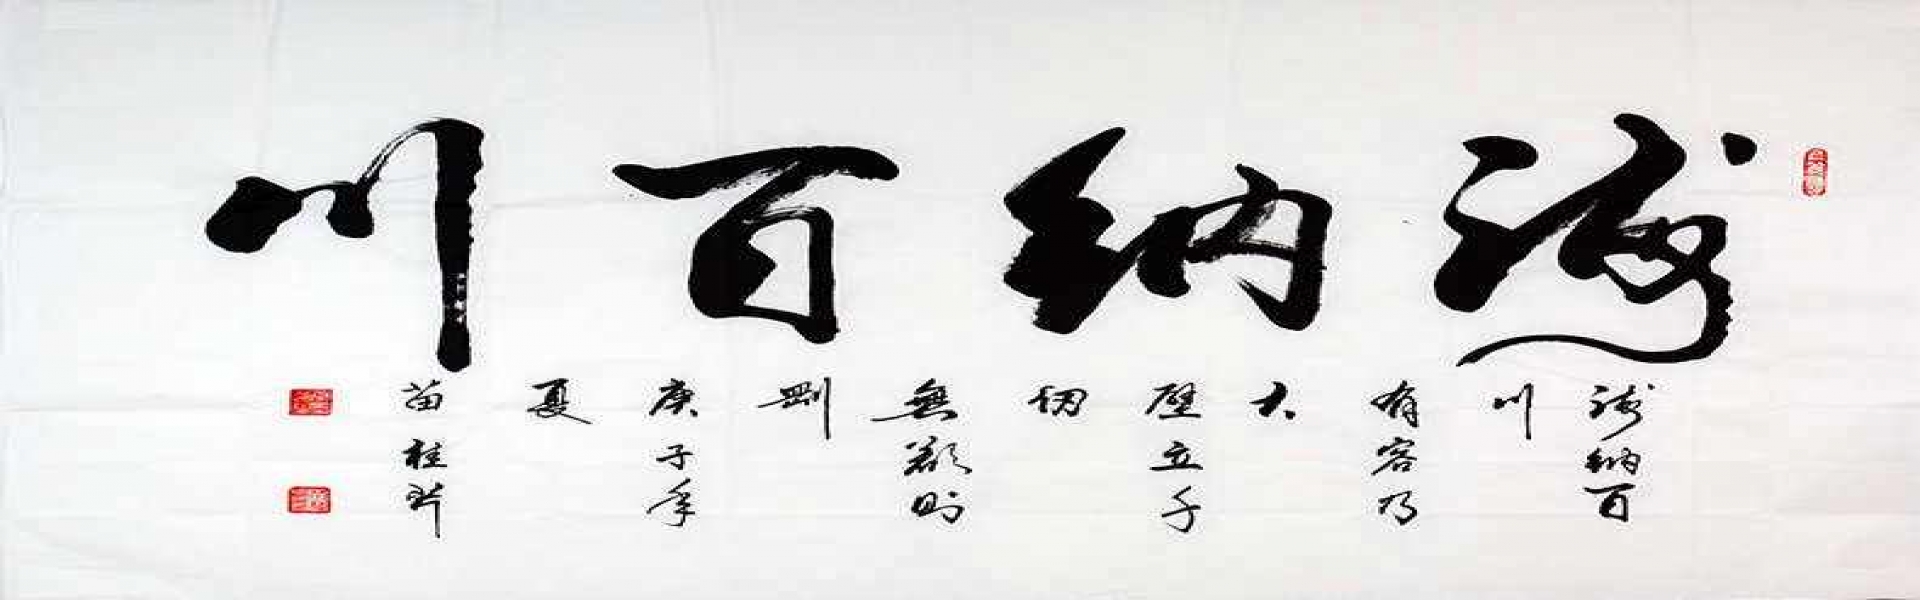 海纳百川
海纳百
川
有容乃
大
壁立千
仞
無欲则
剛
庚子年
夏
苗桂